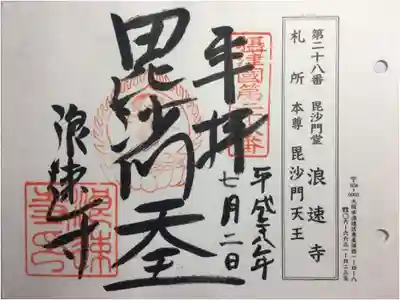 第二十八番 毘沙門堂 浪速寺
札所 本尊 毘沙門天王
奉拝
平成二八年
七月二日
毘沙門天
浪速寺
攝津國第二十八番